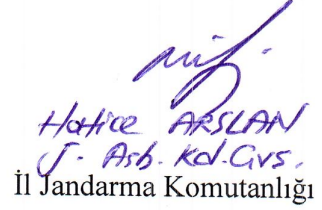 Hatice ARSLAN
J. Asb. Kd. Çvş.
İl Jandarma Komutanlığı